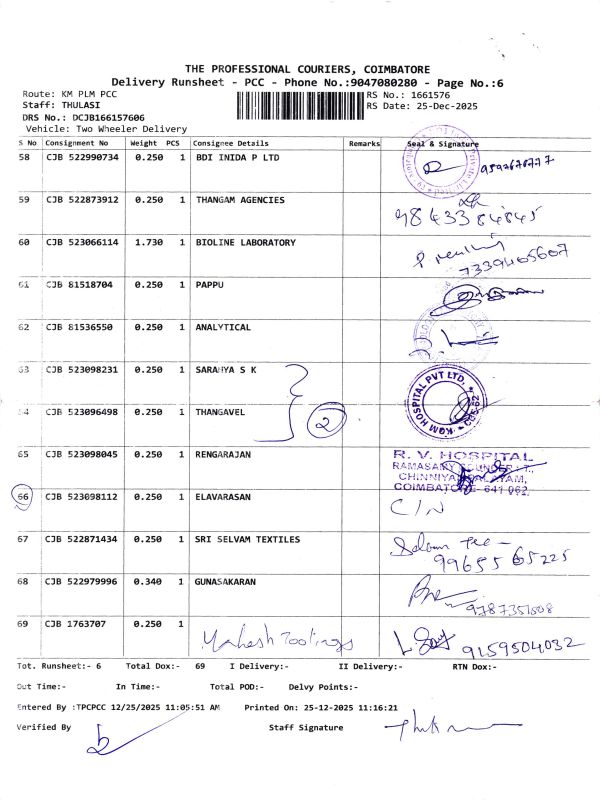 THE PROFESSIONAL COURIERS, COIMBATORE
Delivery Runsheet - PCC - Phone No.:9047080280 - Page No.:6
Route: KM PLM PCC RS No.: 1661576
Staff: THULASI RS Date: 25-Dec-2025
DRS No.: DCJB166157606
Vehicle: Two Wheeler Delivery
S No Consignment No Weight PCS Consignee Details Remarks Seal & Signature
58 CJB 522990734 0.250 1 BDI INIDA P LTD
59 CJB 522873912 0.250 1 THANGAM AGENCIES 9843384845
60 CJB 523066114 1.730 1 BIOLINE LABORATORY 7339465607
61 CJB 81518704 0.250 1 PAPPU
62 CJB 81536550 0.250 1 ANALYTICAL
63 CJB 523098231 0.250 1 SARANYA S K KGM HOSPITAL PVT LTD.
64 CJB 523096498 0.250 1 THANGAVEL 2
65 CJB 523098045 0.250 1 RENGARAJAN R. V. HOSPITAL
CHINNIYAMPALAYAM,
COIMBATORE- 641 062.
66 CJB 523098112 0.250 1 ELAVARASAN C/N
67 CJB 522871434 0.250 1 SRI SELVAM TEXTILES Selvam Tex -
99655 65225
68 CJB 522979996 0.340 1 GUNASAKARAN 9787351608
69 CJB 1763707 0.250 1 Mahesh Toolings 9159504032
Tot. Runsheet:- 6 Total Dox:- 69 I Delivery:- II Delivery:- RTN Dox:-
Out Time:- In Time:- Total POD:- Delvy Points:-
Entered By :TPCPCC 12/25/2025 11:05:51 AM Printed On: 25-12-2025 11:16:21
Verified By Staff Signature